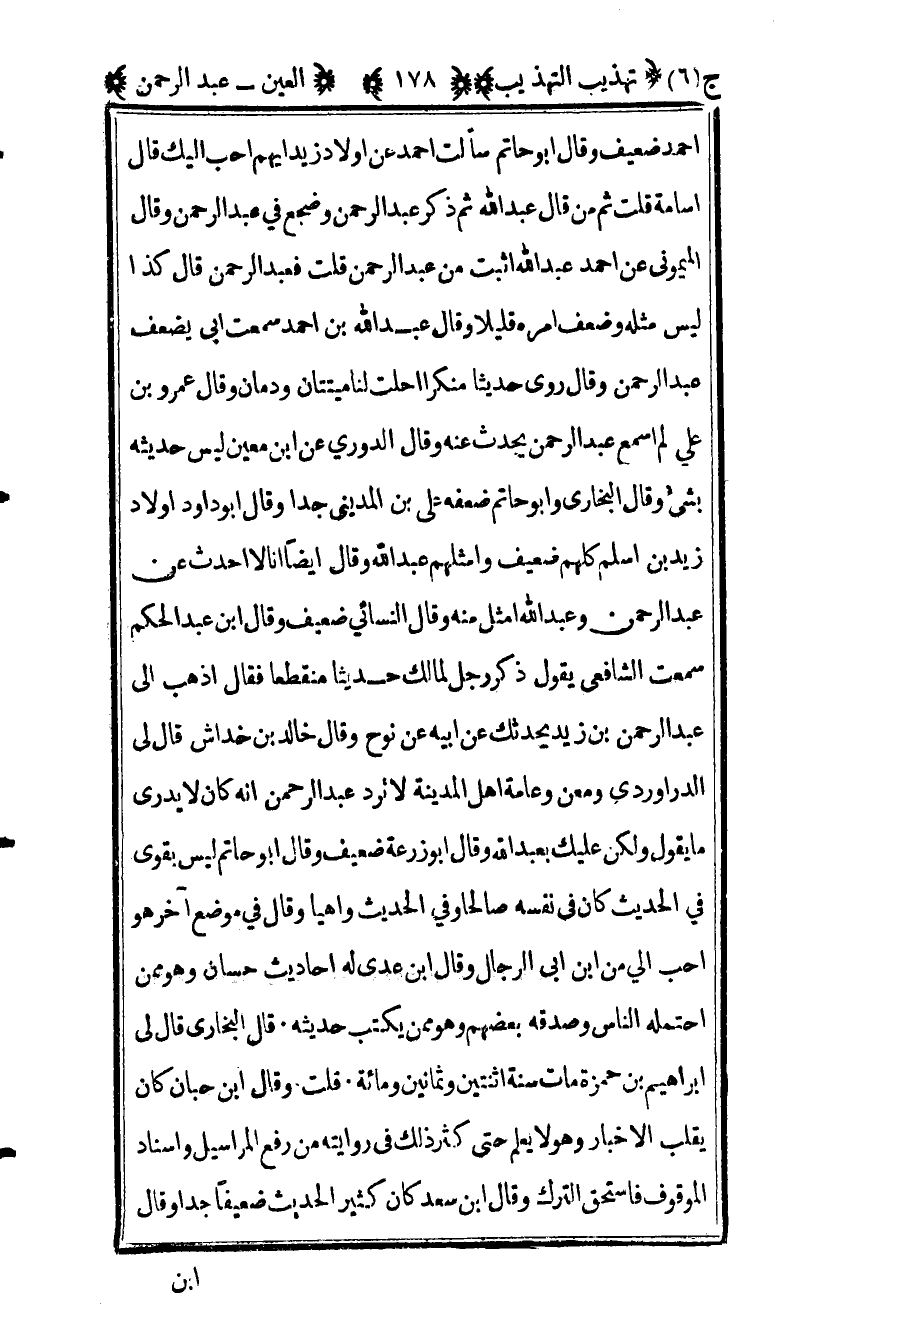 ج (٦) ﴿ تهذيب التهذيب ﴾ ﴿ ١٧٨ ﴾ ﴿ العين ــ عبد الرحمن ﴾
احمد ضعيف وقال ابو حاتم سألت احمد عن اولاد زيد ايهم احب اليك قال
اسامة قلت ثم من قال عبدالله ثم ذكر عبدالرحمن وضجع في عبدالرحمن وقال
الميمونى عن احمد عبدالله اثبت من عبدالرحمن قلت فعبدالرحمن قال كذا
ليس مثله وضعف امره قليلا وقال عبـــدالله بن احمد سمعت ابي يضعف
عبدالرحمن وقال روى حديثا منكرا احلت لنا ميتتان ودمان وقال عمرو بن
علي لم اسمع عبدالرحمن يحدث عنه وقال الدوري عن ابن معين ليس حديثه
بشئ وقال البخارى وابو حاتم ضعفه على بن المدينى جدا وقال ابو داود اولاد
زيد بن اسلم كلهم ضعيف وامثلهم عبدالله وقال ايضاً انا لا احدث عن
عبدالرحمن وعبدالله امثل منه وقال النسائي ضعيف وقال ابن عبدالحكم
سمعت الشافعى يقول ذكر رجل لمالك حــديثا منقطعا فقال اذهب الى
عبدالرحمن بن زيد يحدثك عن ابيه عن نوح وقال خالد بن خداش قال لى
الدراوردي ومعن وعامة اهل المدينة لا ترد عبدالرحمن انه كان لا يدرى
ما يقول ولكن عليك بعبدالله وقال ابو زرعة ضعيف وقال ابو حاتم ليس بقوى
في الحديث كان فى نفسه صالحا وفي الحديث واهيا وقال في موضع آخر هو
احب الي من ابن ابى الرجال وقال ابن عدى له احاديث حسان وهو ممن
احتمله الناس وصدقه بعضهم وهو ممن يكتب حديثه ٠ قال البخارى قال لى
ابراهيم بن حمزة مات سنة اثنتين وثمانين ومائة ٠ قلت ٠ وقال ابن حبان كان
يقلب الاخبار وهو لا يعلم حتى كثر ذلك فى روايته من رفع المراسيل واسناد
الموقوف فاستحق الترك وقال ابن سعد كان كثير الحديث ضعيفاً جدا وقال
ابن